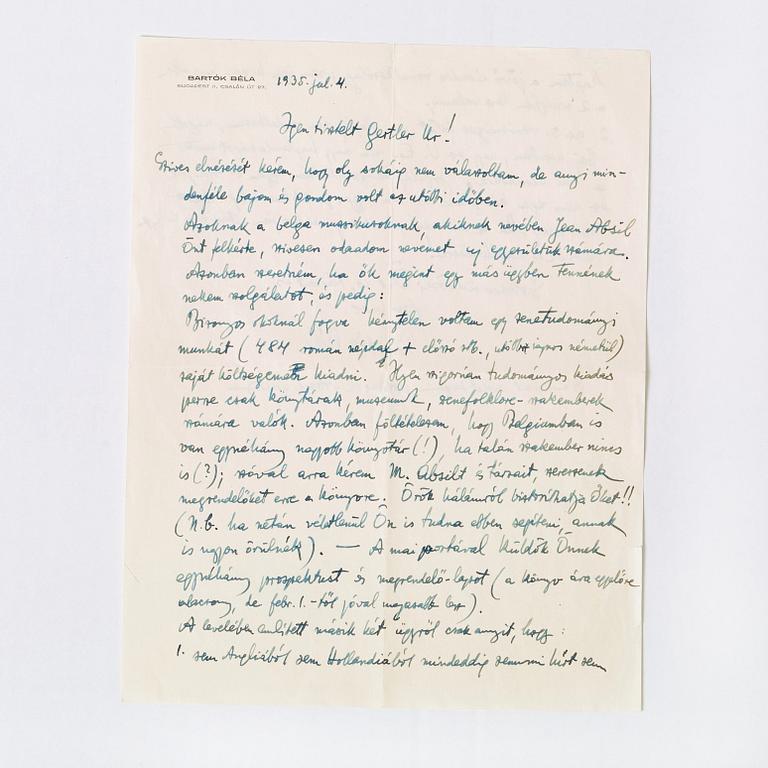 BARTÓK BÉLA
BUDAPEST II, CSALÁN ÚT 27.
1935. jul. 4.
Igen tisztelt Gertler Ur!
Szives elnézését kérem, hogy oly sokáig nem válaszoltam, de annyi min-
denféle bajom és gondom volt az utóbbi időben.
Azoknak a belga muzsikusoknak, akiknek nevében Jean Absil
Önt felkérte, szivesen odaadom nevemet uj egyesületük számára.
Azonban szeretném, ha ők megint egy más ügyben tennének
nekem szolgálatot, és pedig:
Bizonyos okoknál fogva kénytelen voltam egy zenetudományi
munkát (484 román népdal + előszó stb., utóbbi németül)
saját költségemen kiadni. Ilyen szigorúan tudományos kiadás
persze csak könyvtárak, muzeumok, zenefolklore-szakemberek
számára valók. Azonban föltételezem, hogy Belgiumban is
van egynéhány nagyobb könyvtár (!), ha talán szakember nincs
is (?); szóval arra kérem M. Absilt és társait, szerezzenek
megrendelőket erre a könyvre. Örök hálámról biztosíthatja Őket!!
(N.b. ha netán véletlenül Ön is tudna ebben segíteni, annak
is nagyon örülnék). — A mai postával küldök Önnek
egynéhány prospektust és megrendelő-lapot (a könyv ára egyelőre
alacsony, de febr. 1.-től jóval magasabb lesz).
A levelében említett másik két ügyről csak annyit, hogy:
1. sem Angliából sem Hollandiából mindeddig semmi hírt sem